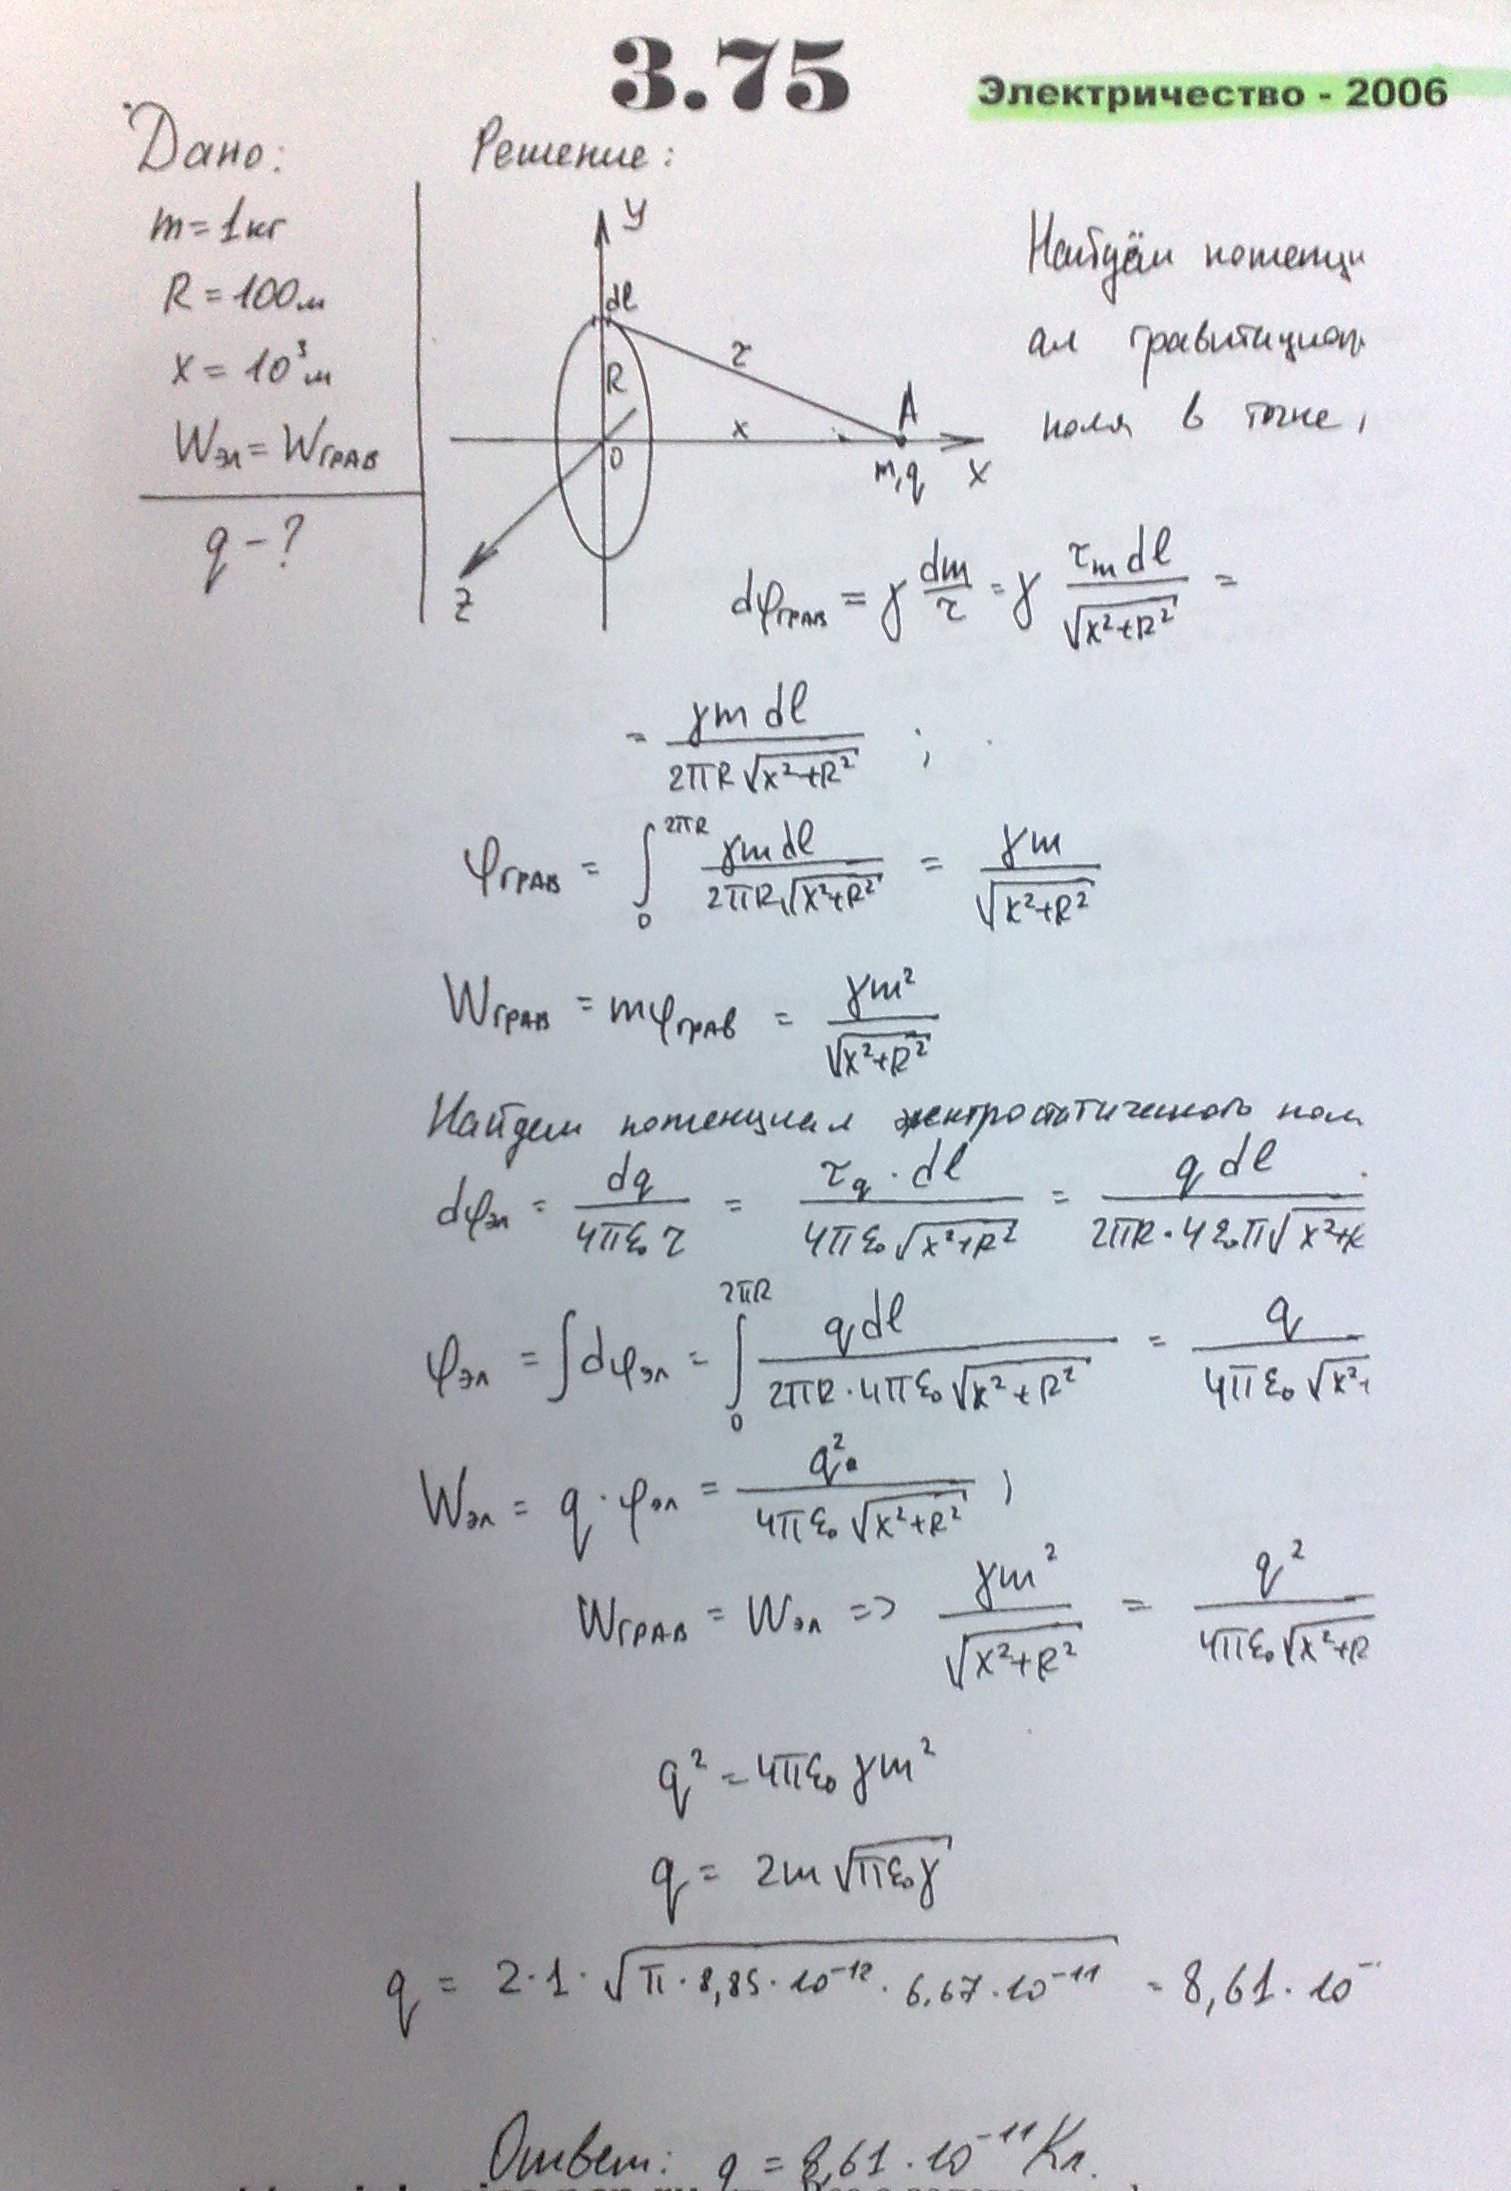 3.75
Электричество - 2006
Дано:
m = 1 кг
R = 100 м
x = 10³ м
Wэл = Wграв
q - ?
Решение:
y
dl
R
r
x
A
0
m, q
X
z
Найдём потенци
ал гравитацион
поля в точке
dφграв = γ dm/r = γ τm dl/√(x²+R²) =
= γm dl/(2πR√(x²+R²)) ;
φграв = ∫₀^2πR γm dl/(2πR√(x²+R²)) = γm/√(x²+R²)
Wграв = mφграв = γm²/√(x²+R²)
Найдем потенциал электростатического пол
dφэл = dq/(4πε₀ r) = τq · dl/(4πε₀√(x²+R²)) = q dl/(2πR · 4ε₀π√(x²+R
φэл = ∫dφэл = ∫₀^2πR q dl/(2πR · 4πε₀√(x²+R²)) = q/(4πε₀√(x²+
Wэл = q · φэл = q²/(4πε₀√(x²+R²)) ;
Wграв = Wэл => γm²/√(x²+R²) = q²/(4πε₀√(x²+R
q² = 4πε₀γm²
q = 2m√(πε₀γ)
q = 2·1·√(π · 8,85 · 10⁻¹² · 6,67 · 10⁻¹¹) = 8,61 · 10⁻
Ответ: q = 8,61 · 10⁻¹¹ Кл.